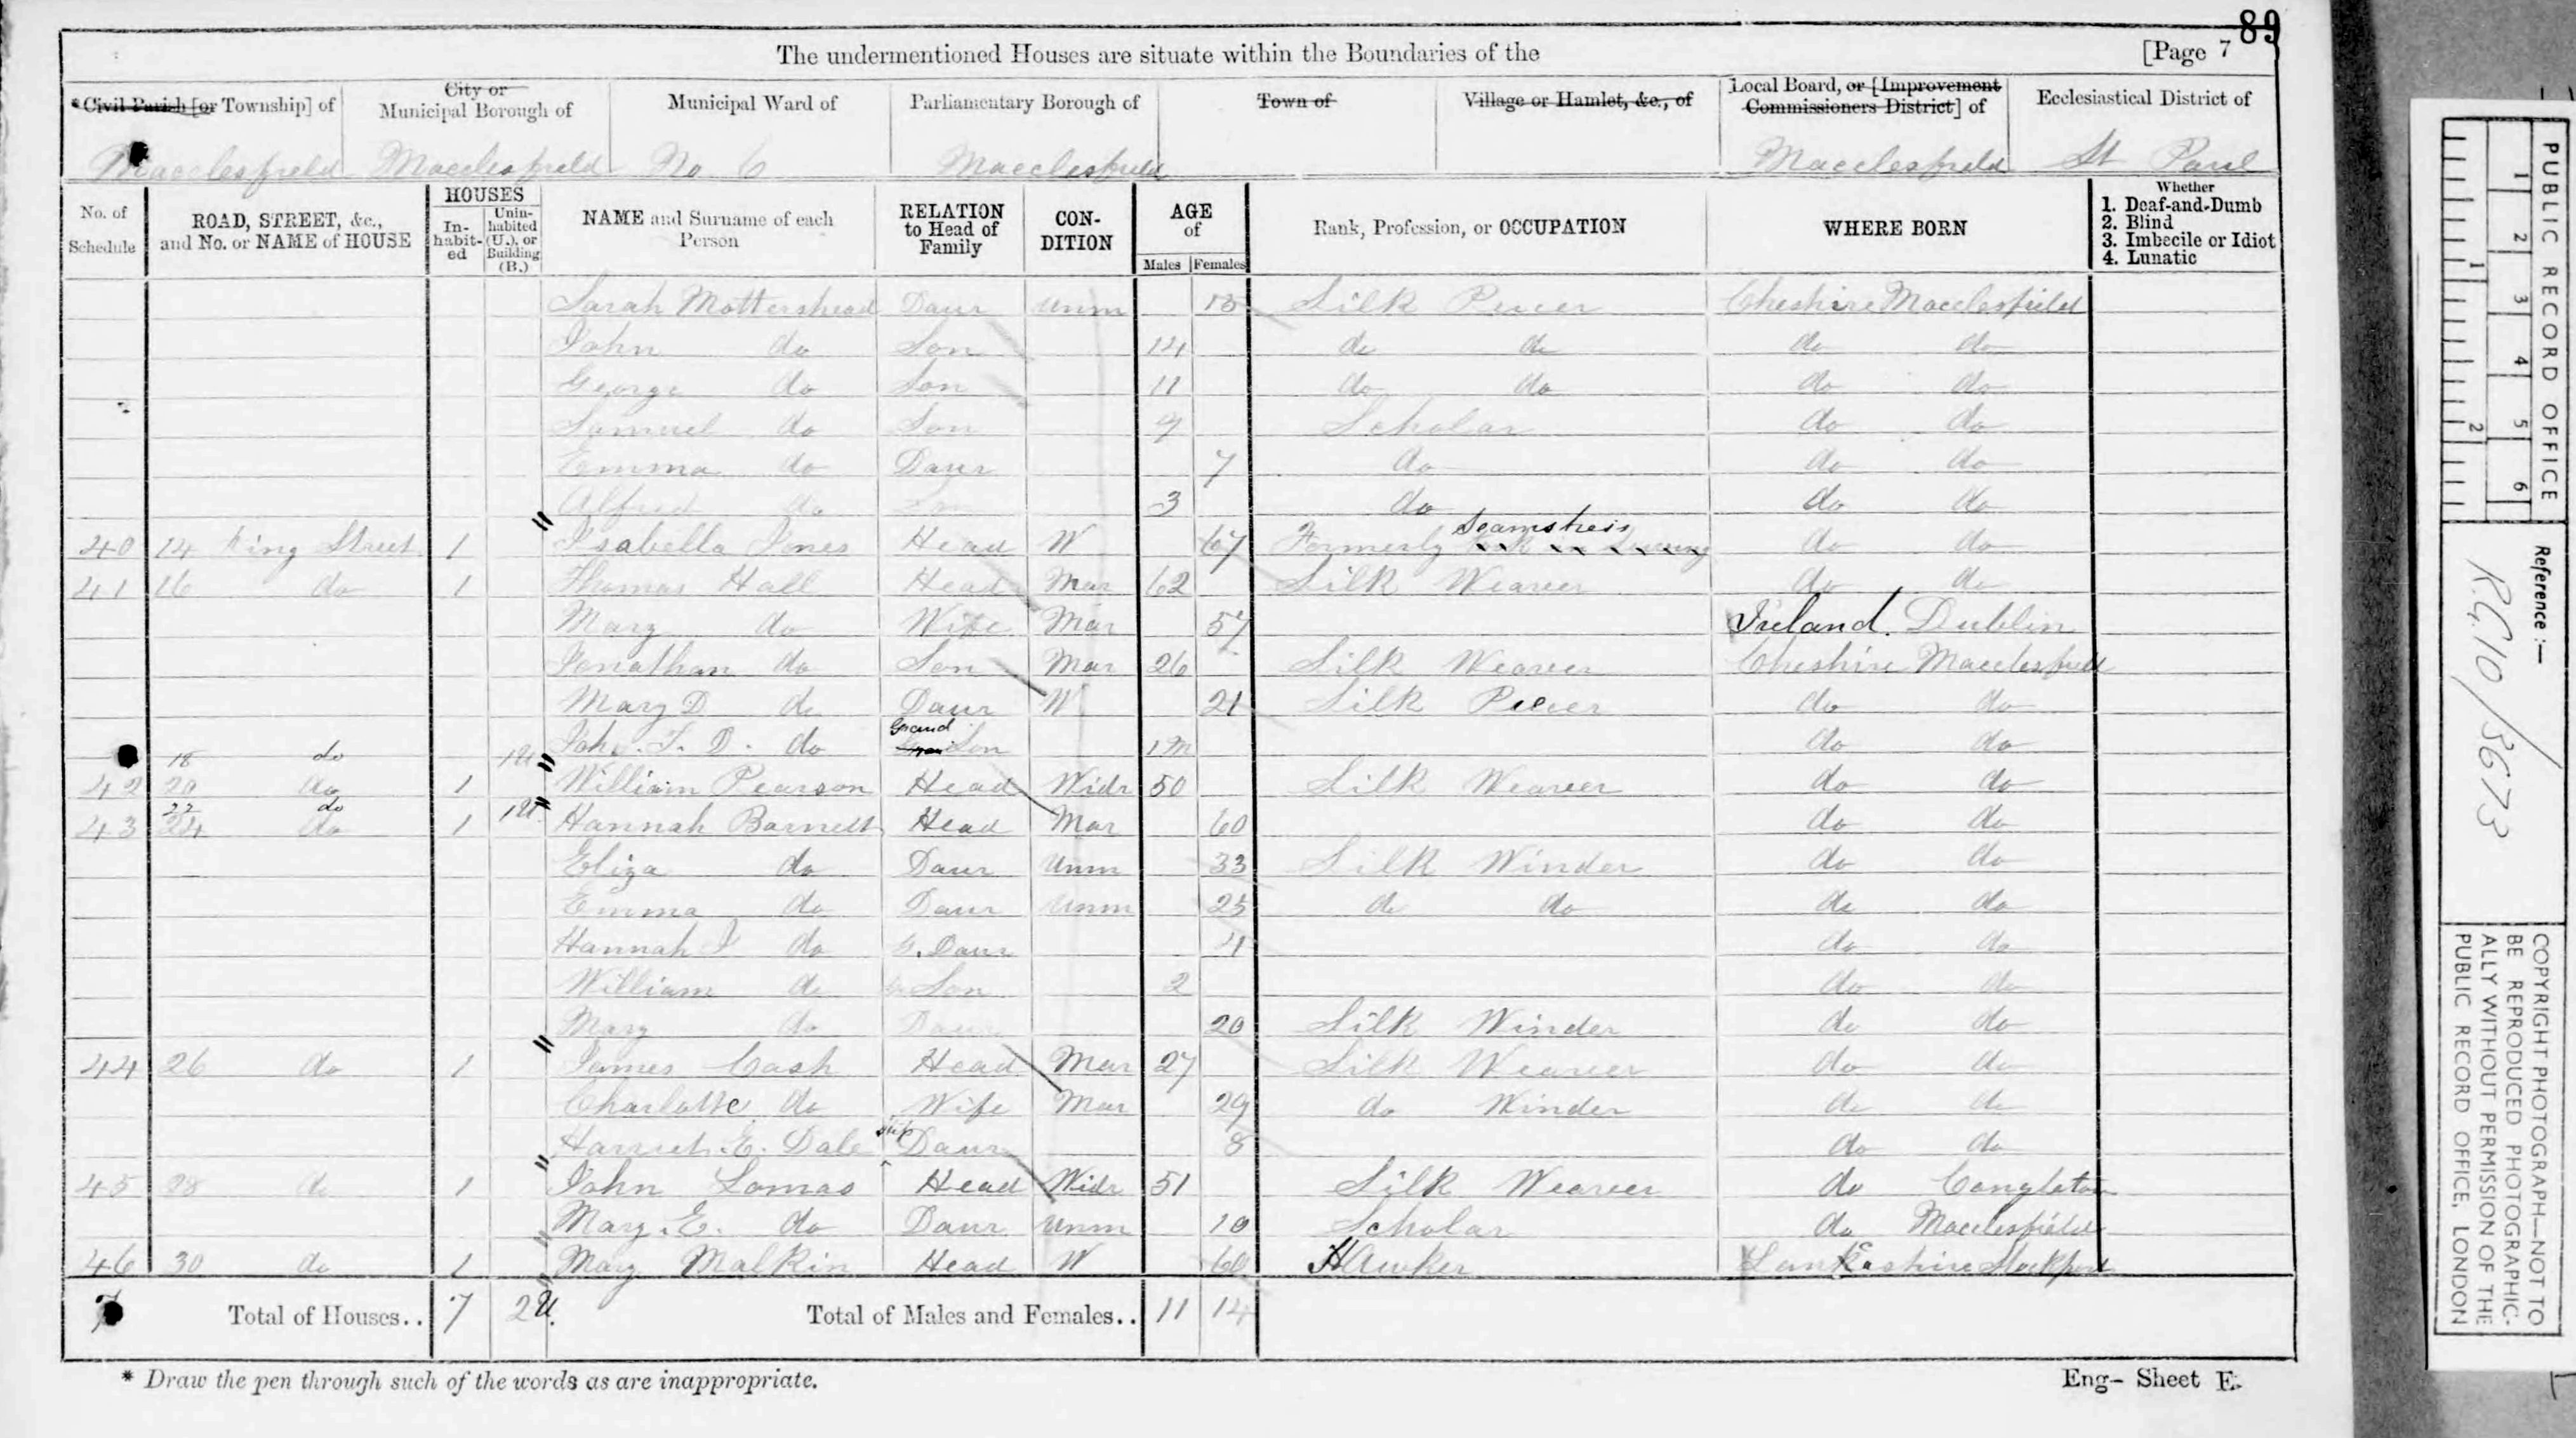 89
The undermentioned Houses are situate within the Boundaries of the [Page 7
*Civil Parish [or Township] of City or Municipal Borough of Municipal Ward of Parliamentary Borough of Town of Village or Hamlet, &c., of Local Board, or [Improvement Commissioners District] of Ecclesiastical District of
Macclesfield Macclesfield No 6 Macclesfield Macclesfield St Paul
No. of Schedule ROAD, STREET, &c., and No. or NAME of HOUSE HOUSES Inhabited Uninhabited (U.), or Building (B.) NAME and Surname of each Person RELATION to Head of Family CONDITION AGE of Males Females Rank, Profession, or OCCUPATION WHERE BORN Whether 1. Deaf-and-Dumb 2. Blind 3. Imbecile or Idiot 4. Lunatic
Sarah Mottershead Daur Unm Silk Piecer Cheshire Macclesfield
John do Son 14 do do do do
George do Son 11 do do do do
Samuel do Son 9 Scholar do do
Emma do Daur 7 do do do
Alfred do Son 3 do do do
40 14 King Street 1 Isabella Jones Head W 67 Formerly Seamstress do do
41 16 do 1 Thomas Hall Head Mar 62 Silk Weaver do do
Mary do Wife Mar 57 Ireland. Dublin
Jonathan do Son Mar 26 Silk Weaver Cheshire Macclesfield
Mary D do Daur W 21 Silk Piecer do do
18 do 1U John. T. D. do Grand Son 1m do do
42 20 do 1 William Pearson Head Widr 50 Silk Weaver do do
22 do 1U
43 24 do 1 Hannah Barnett Head Mar 60 do do
Eliza do Daur Unm 33 Silk Winder do do
Emma do Daur Unm 25 do do do do
Hannah J do G. Daur 4 do do
William do G Son 2 do do
Mary do Daur 20 Silk Winder do do
44 26 do 1 James Cash Head Mar 27 Silk Weaver do do
Charlotte do Wife Mar 29 do Winder do do
Harriet. E. Dale step Daur 8 do do
45 28 do 1 John Lomas Head Widr 51 Silk Weaver do Congleton
Mary. E. do Daur Unm 10 Scholar do Macclesfield
46 30 do 1 Mary Malkin Head W 60 Hawker Lancashire Stockport
7 Total of Houses.. 7 2U. Total of Males and Females.. 11 14
* Draw the pen through such of the words as are inappropriate. Eng- Sheet E.
PUBLIC RECORD OFFICE
1 2 3 4 5 6
1 2
Reference :-
R.G.10/3673
COPYRIGHT PHOTOGRAPH—NOT TO
BE REPRODUCED PHOTOGRAPHIC-
ALLY WITHOUT PERMISSION OF THE
PUBLIC RECORD OFFICE, LONDON